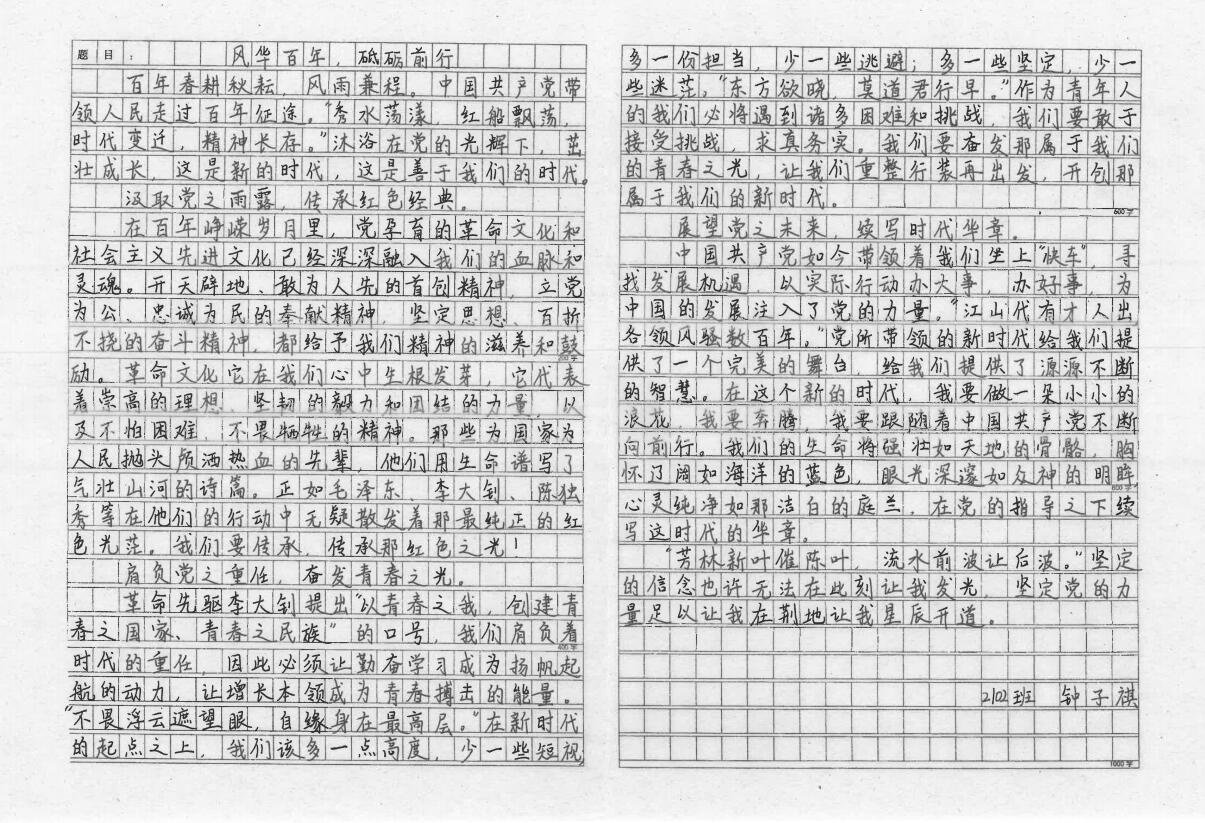 题目：风华百年，砥砺前行
百年春耕秋耘，风雨兼程。中国共产党带
领人民走过百年征途。“秀水荡漾，红船飘荡，
时代变迁，精神长存。”沐浴在党的光辉下，茁
壮成长，这是新的时代，这是善于我们的时代。
汲取党之雨露，传承红色经典。
在百年峥嵘岁月里，党孕育的革命文化和
社会主义先进文化已经深深融入我们的血脉和
灵魂。开天辟地、敢为人先的首创精神，立党
为公、忠诚为民的奉献精神，坚定思想、百折
不挠的奋斗精神，都给予我们精神的滋养和鼓
200字
励。革命文化它在我们心中生根发芽，它代表
着崇高的理想、坚韧的毅力和团结的力量，以
及不怕困难，不畏牺牲的精神。那些为国家为
人民抛头颅洒热血的先辈，他们用生命谱写了
气壮山河的诗篇。正如毛泽东、李大钊、陈独
秀等在他们的行动中无疑散发着那最纯正的红
色光茫。我们要传承，传承那红色之光！
肩负党之重任，奋发青春之光。
革命先驱李大钊提出“以青春之我，创建青
春之国家、青春之民族”的口号，我们肩负着
400字
时代的重任，因此必须让勤奋学习成为扬帆起
航的动力，让增长本领成为青春搏击的能量。
“不畏浮云遮望眼，自缘身在最高层。”在新时代
的起点之上，我们该多一点高度，少一些短视，
多一份担当，少一些逃避；多一些坚定，少一
些迷茫。“东方欲晓，莫道君行早。”作为青年人
的我们必将遇到诸多困难和挑战，我们要敢于
接受挑战，求真务实。我们要奋发那属于我们
的青春之光，让我们重整行装再出发，开创那
属于我们的新时代。
600字
展望党之未来，续写时代华章。
中国共产党如今带领着我们坐上“快车”，寻
找发展机遇，以实际行动办大事，办好事，为
中国的发展注入了党的力量。“江山代有才人出，
各领风骚数百年。”党所带领的新时代给我们提
供了一个完美的舞台，给我们提供了源源不断
的智慧。在这个新的时代，我要做一朵小小的
浪花，我要奔腾，我要跟随着中国共产党不断
向前行。我们的生命将强壮如天地的骨骼，胸
怀辽阔如海洋的蓝色，眼光深邃如众神的明眸，
800字
心灵纯净如那洁白的庭兰，在党的指导之下续
写这时代的华章。
“芳林新叶催陈叶，流水前波让后波。”坚定
的信念也许无法在此刻让我发光，坚定党的力
量足以让我在荆地让我星辰开道。
2102班 钟子祺
1000字